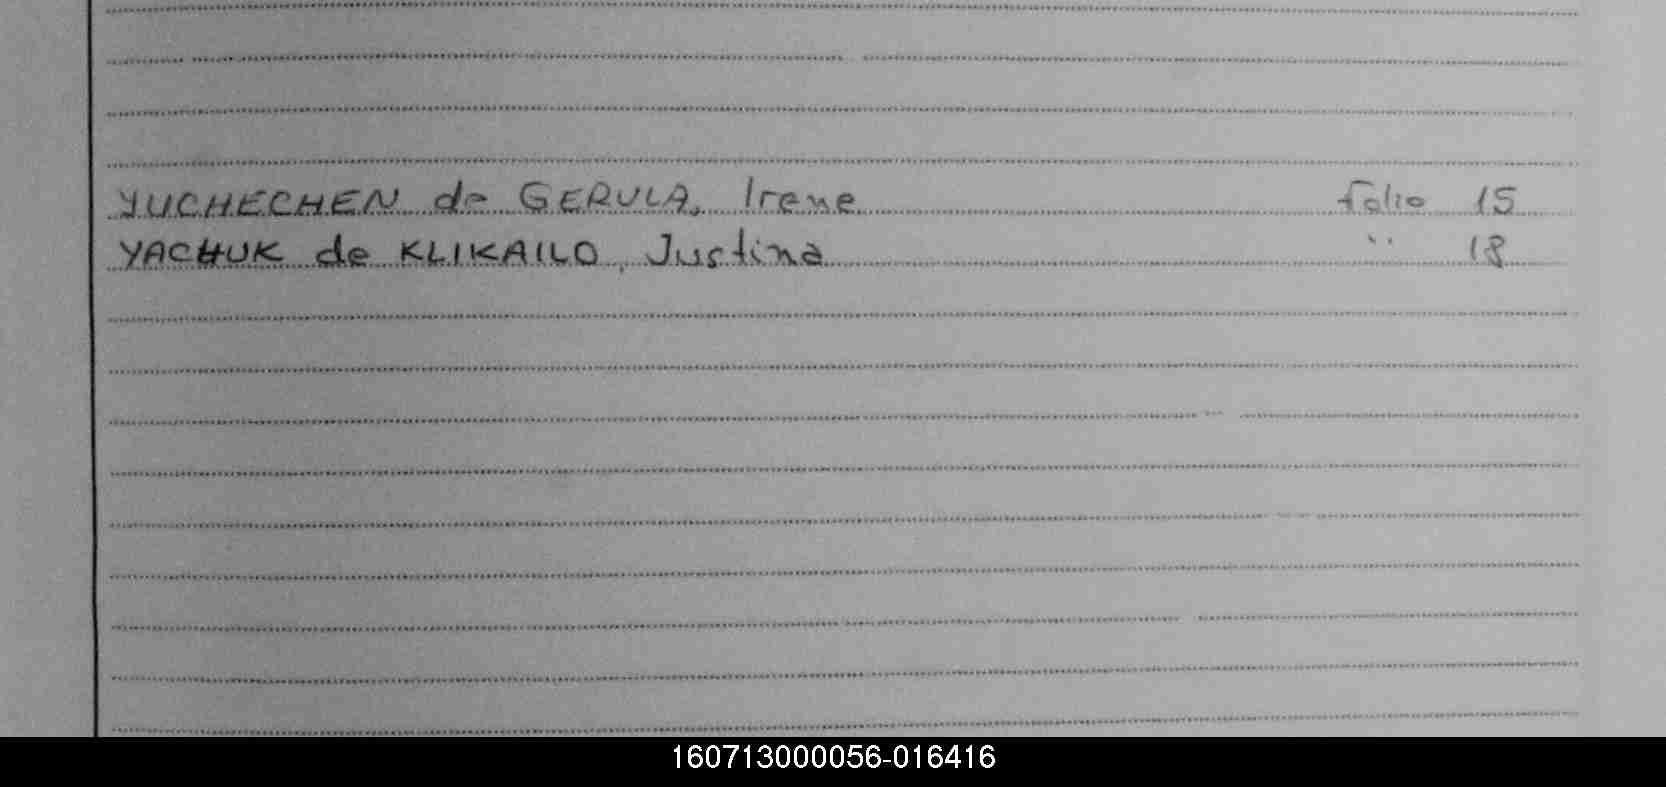 YUCHECHEN de GERULA, Irene folio 15
YACHUK de KLIKAILO, Justina " 18
160713000056-016416